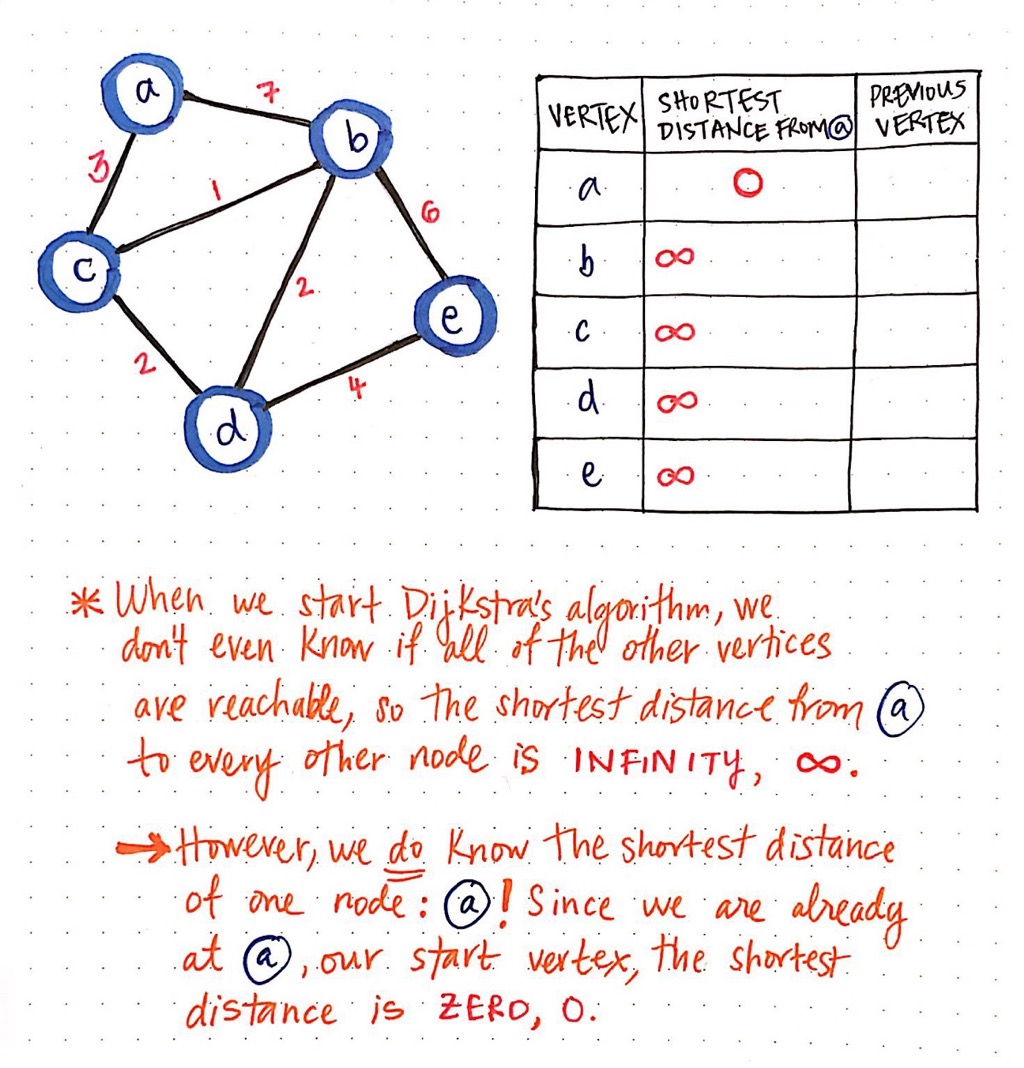 a
7
b
3
1
6
c
2
e
2
4
d
VERTEX
SHORTEST DISTANCE FROM a
PREVIOUS VERTEX
a 0
b ∞
c ∞
d ∞
e ∞
* When we start Dijkstra's algorithm, we
don't even know if all of the other vertices
are reachable, so the shortest distance from a
to every other node is INFINITY, ∞.
→ However, we do know the shortest distance
of one node: a! Since we are already
at a, our start vertex, the shortest
distance is ZERO, 0.